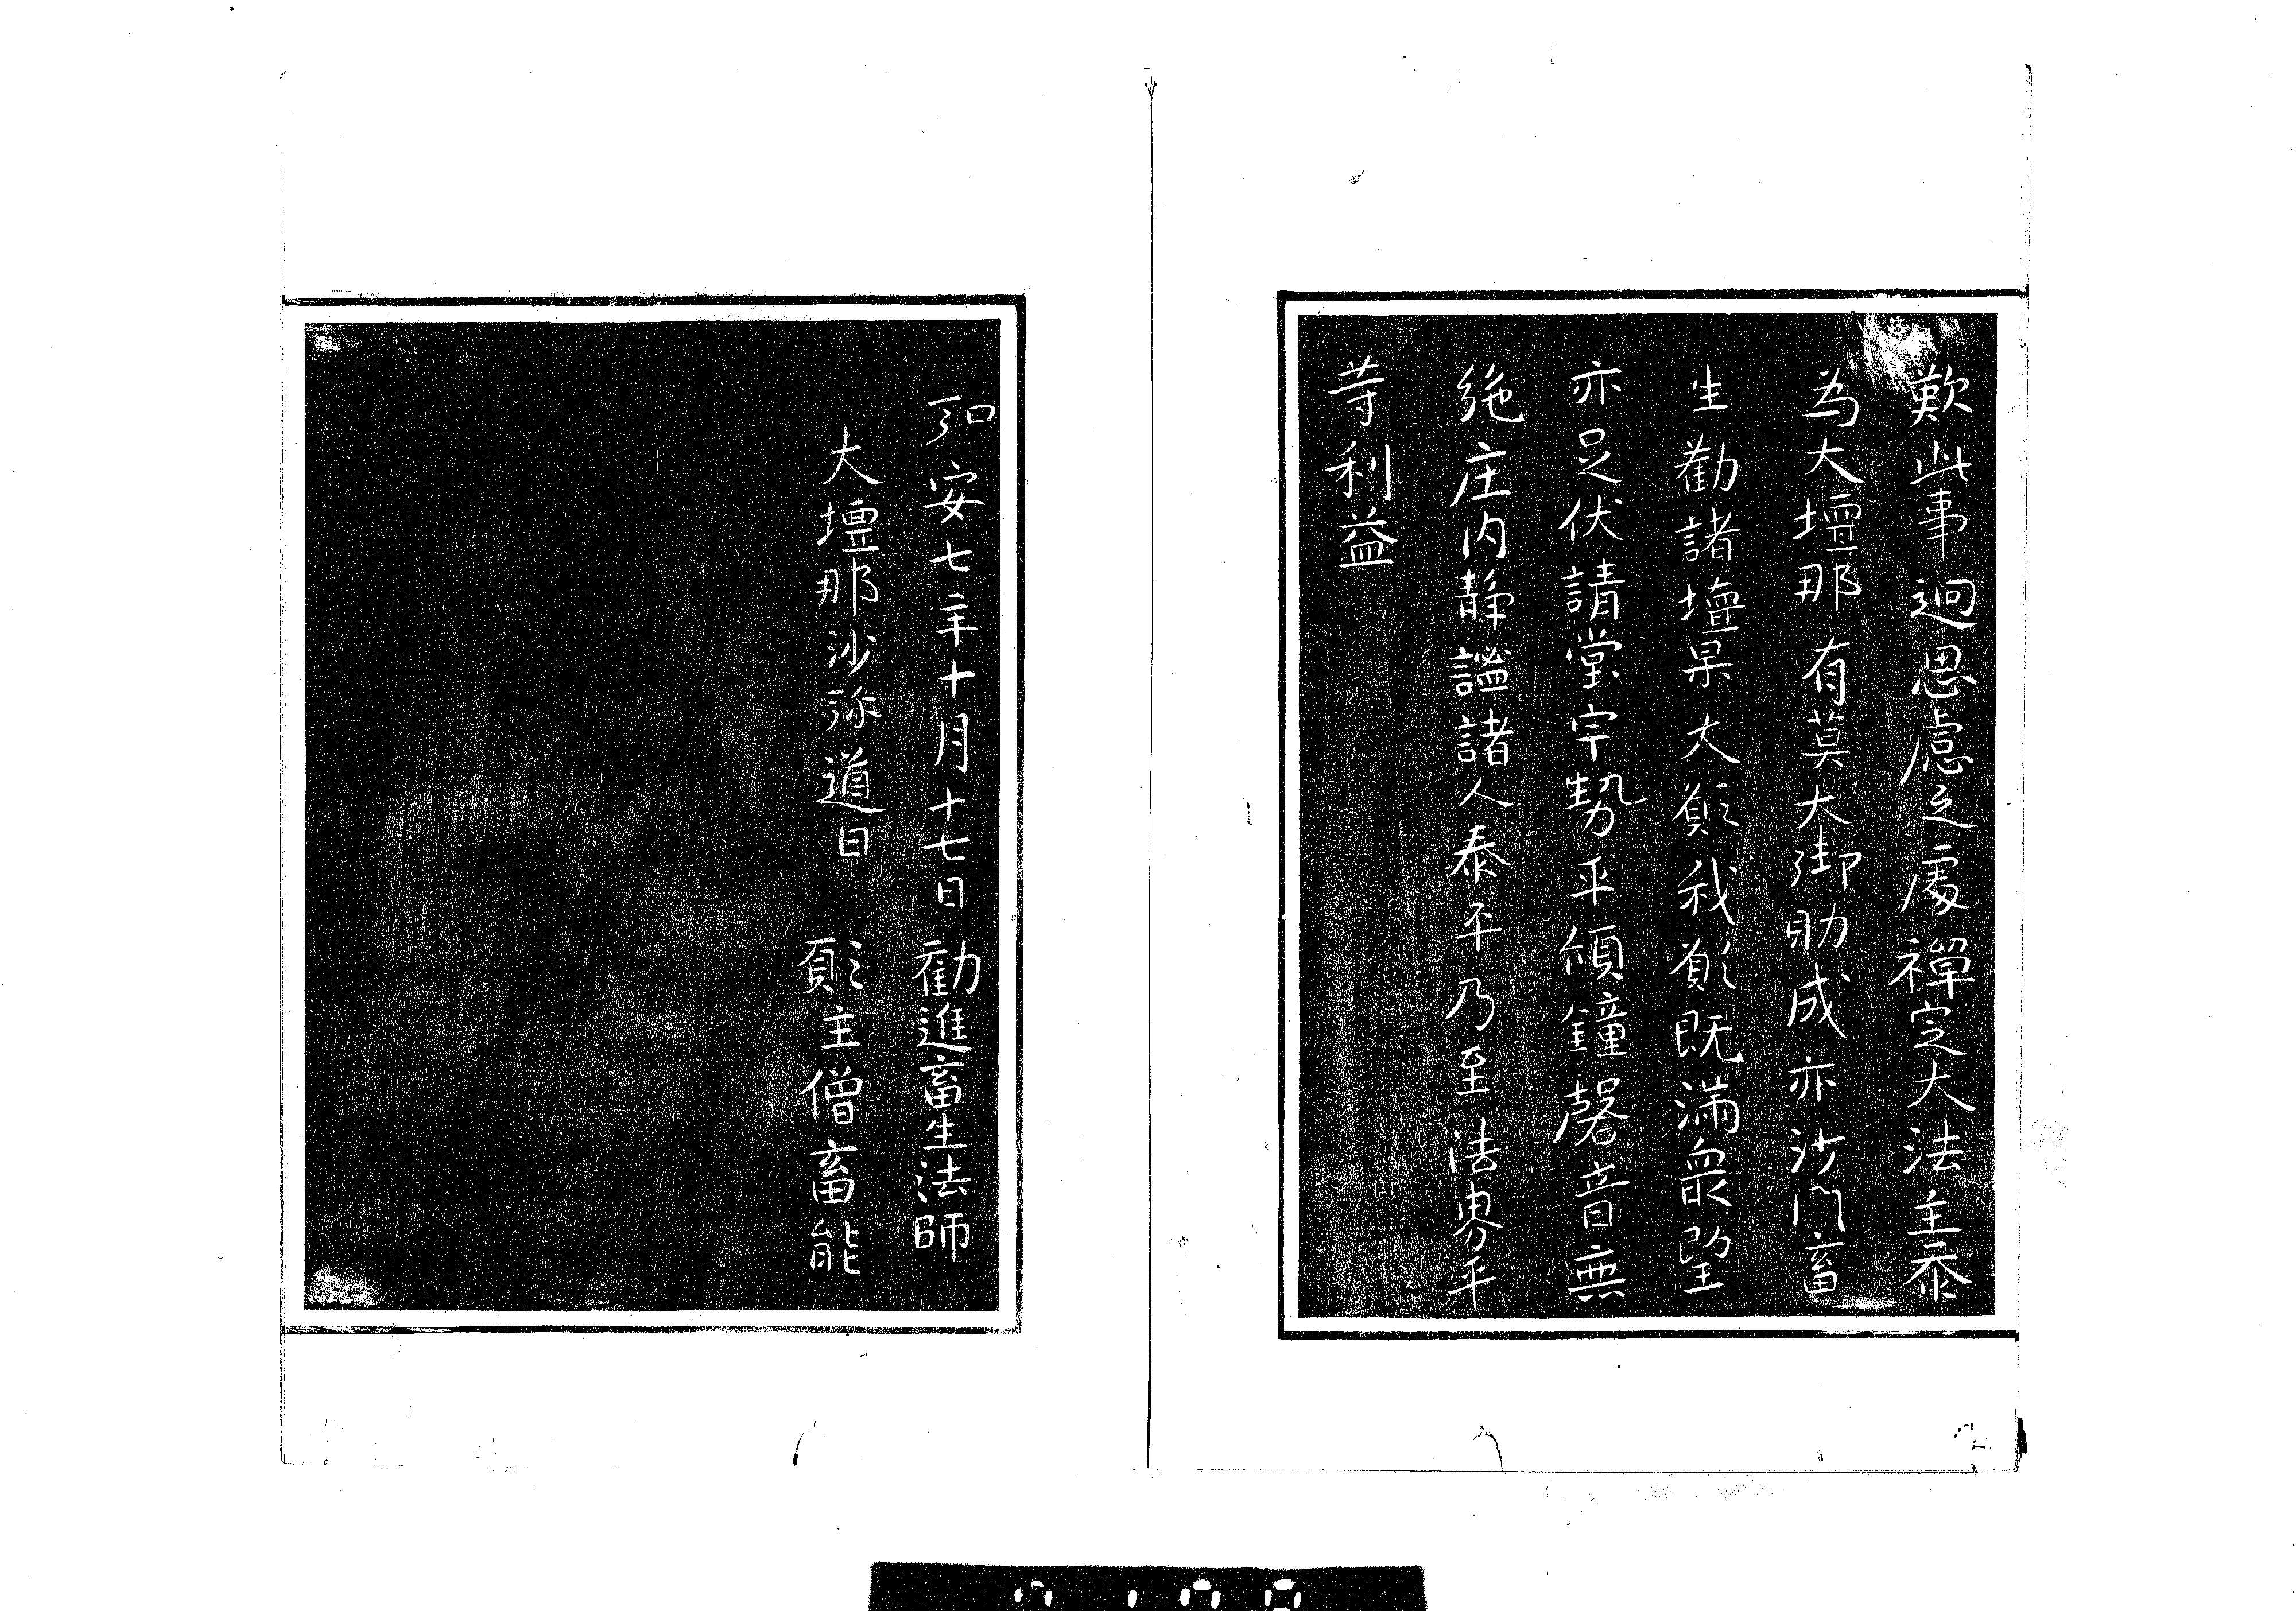 歎此事廻思慮之處禪定大法主忝
为大壇那有莫大御助成亦沙門畜
生勸諸壇果大願我願既滿衆望
亦足伏請堂宇勢平傾鐘磬音無
絶庄内静謐諸人泰平乃至法界平
等利益
弘安七年十月十七日 勸進畜生法師
大壇那沙弥道日 願主僧畜能